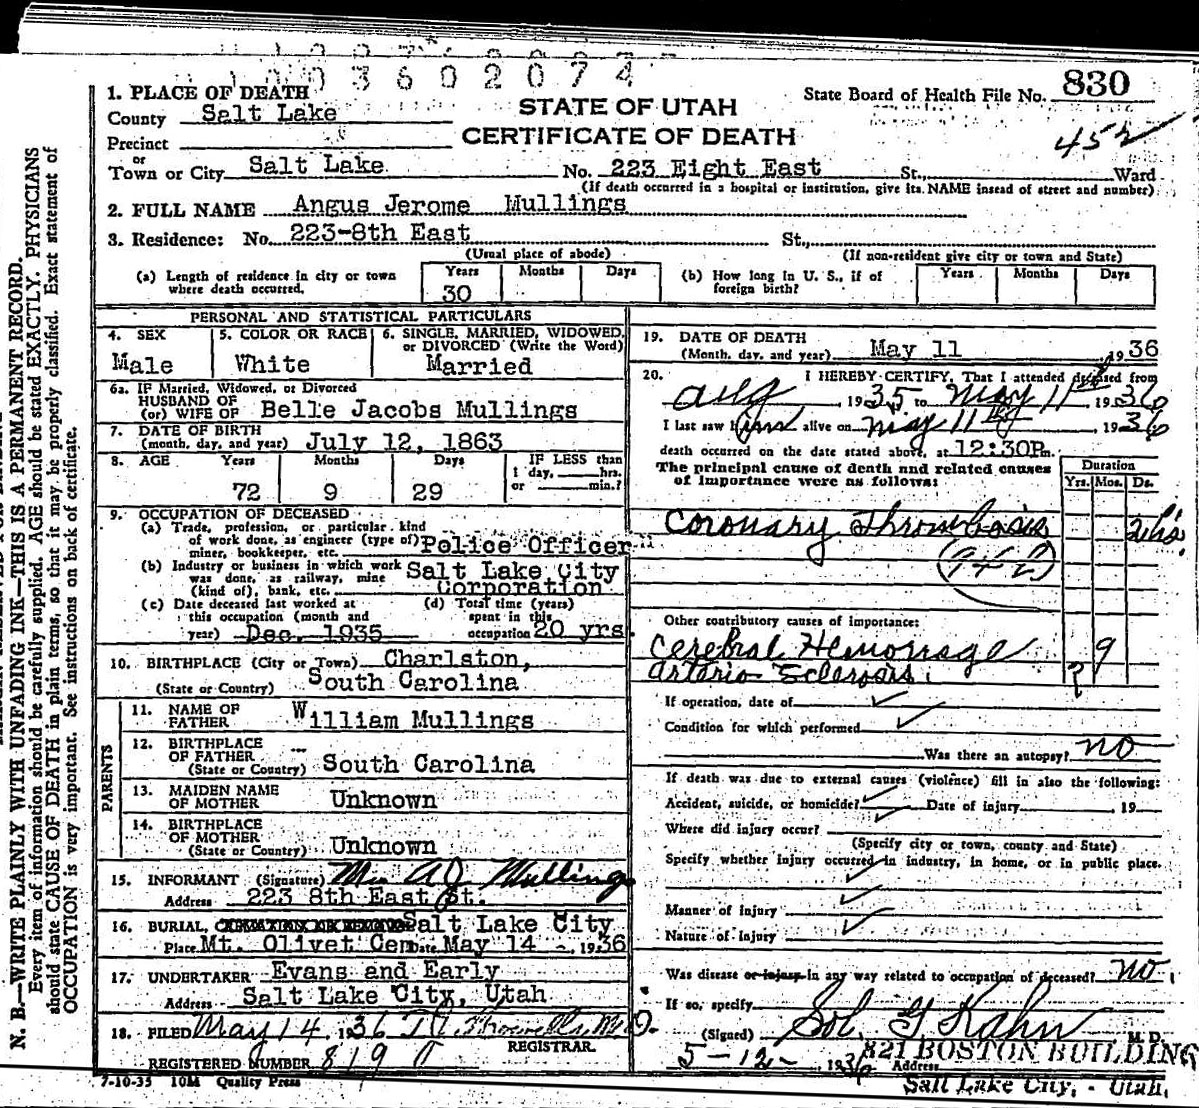 1003602074
1. PLACE OF DEATH
County Salt Lake
STATE OF UTAH
CERTIFICATE OF DEATH
State Board of Health File No. 830
452
Precinct
or
Town or City Salt Lake No. 223 Eight East St., Ward
(If death occurred in a hospital or institution, give its NAME instead of street and number)
2. FULL NAME Angus Jerome Mullings
3. Residence: No. 223-8th East St.,
(Usual place of abode) (If non-resident give city or town and State)
(a) Length of residence in city or town where death occurred. Years 30 Months Days
(b) How long in U. S., if of foreign birth? Years Months Days
PERSONAL AND STATISTICAL PARTICULARS
4. SEX Male
5. COLOR OR RACE White
6. SINGLE, MARRIED, WIDOWED, or DIVORCED (Write the Word) Married
6a. IF Married, Widowed, or Divorced
HUSBAND OF
(or) WIFE OF Belle Jacobs Mullings
7. DATE OF BIRTH
(month, day, and year) July 12, 1863
8. AGE Years Months Days IF LESS than
1 day, hrs.
or min.?
72 9 29
9. OCCUPATION OF DECEASED
(a) Trade, profession, or particular kind
of work done, as engineer (type of)
miner, bookkeeper, etc. Police Officer
(b) Industry or business in which work
was done, as railway, mine
(kind of), bank, etc. Salt Lake City
Corporation
(c) Date deceased last worked at
this occupation (month and
year) Dec. 1935
(d) Total time (years)
spent in this
occupation 20 yrs.
10. BIRTHPLACE (City or Town) Charlston,
(State or Country) South Carolina
PARENTS
11. NAME OF
FATHER William Mullings
12. BIRTHPLACE
OF FATHER
(State or Country) South Carolina
13. MAIDEN NAME
OF MOTHER Unknown
14. BIRTHPLACE
OF MOTHER
(State or Country) Unknown
15. INFORMANT (Signature) Mrs AJ Mullings
Address 223 8th East St.
16. BURIAL, CREMATION OR REMOVAL Salt Lake City
Place Mt. Olivet Cem Date May 14 1936
17. UNDERTAKER Evans and Early
Address Salt Lake City, Utah
18. FILED May 14 1936 M.D.
REGISTRAR.
REGISTERED NUMBER 819
7-10-35 10M Quality Press
19. DATE OF DEATH
(Month, day, and year) May 11 1936
20. I HEREBY CERTIFY, That I attended deceased from
Aug 1935 to May 11th 1936
I last saw him alive on May 11th 1936
death occurred on the date stated above, at 12:30P m.
The principal cause of death and related causes
of importance were as follows:
Duration
Yrs. Mos. Ds.
Coronary Thrombosis 2 hrs.
(94-2)
Other contributory causes of importance:
Cerebral Hemorrage 9
Arterio Sclerosis. ?
If operation, date of
Condition for which performed
Was there an autopsy? no
If death was due to external causes (violence) fill in also the following:
Accident, suicide, or homicide? Date of injury 19
Where did injury occur?
(Specify city or town, county and State)
Specify whether injury occurred in industry, in home, or in public place.
Manner of injury
Nature of injury
Was disease or injury in any way related to occupation of deceased? no.
If so, specify
(Signed) Sol. G Kahn M. D.
5-12- 1936 Address 821 BOSTON BUILDING
Salt Lake City, - Utah.
N. B.—WRITE PLAINLY WITH UNFADING INK—THIS IS A PERMANENT RECORD.
Every item of information should be carefully supplied. AGE should be stated EXACTLY. PHYSICIANS
should state CAUSE OF DEATH in plain terms, so that it may be properly classified. Exact statement of
OCCUPATION is very important. See instructions on back of certificate.